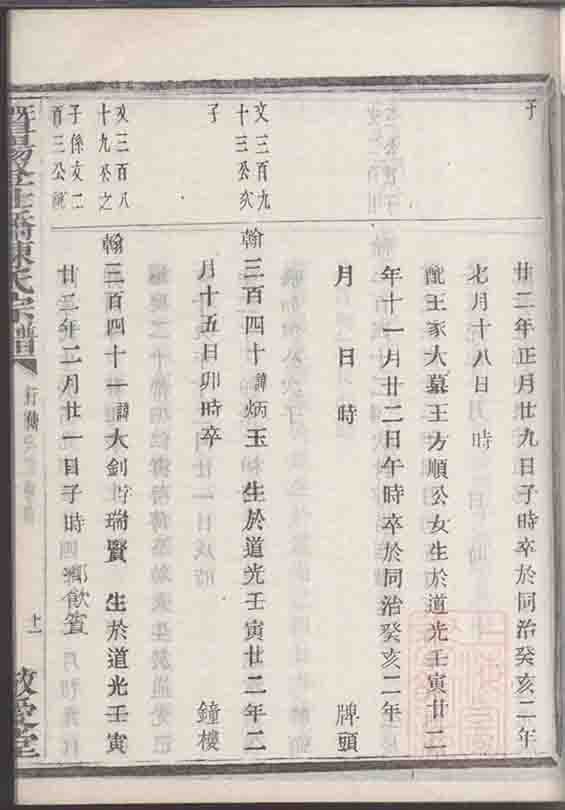 子
廿二年正月廿九日子時卒於同治癸亥二年
七月十八日 時
配王家大墓王方順公女生於道光壬寅廿二
年十一月廿二日午時卒於同治癸亥二年
月 日 時 牌頭
文三百九
十三公次
子
翰三百四十諱炳玉 生於道光壬寅廿二年二
月十五日卯時卒 鐘樓
文三百八
十九公之
子係文二
百三公
翰三百四十一諱大釗字瑞賢 生於道光壬寅
廿二年二月廿一日子時 鄉飲賓
暨陽 陳氏宗譜
行傳
十一
敬愛堂